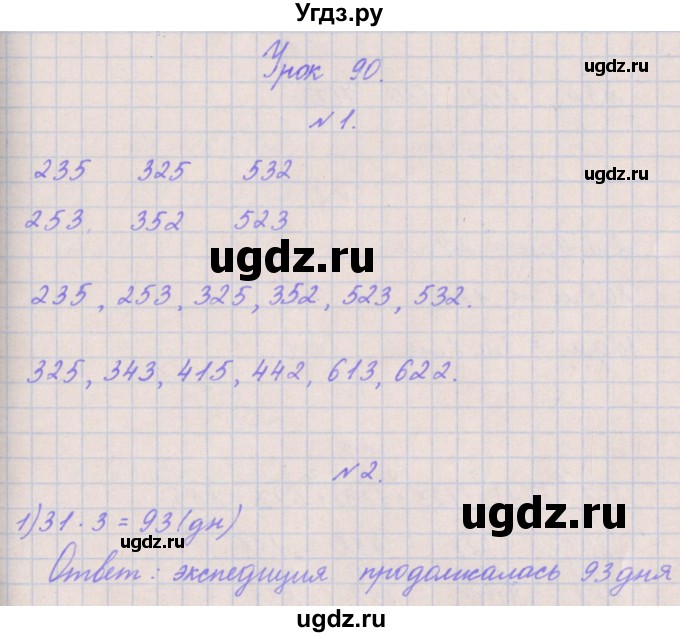 Угдз.ру
Урок 90.
ugdz.ru
№1.
235 325 532
ugdz.ru
253. 352 523
ugdz.ru
235, 253, 325, 352, 523, 532.
325, 343, 415, 442, 613, 622.
№2.
1) 31 · 3 = 93 (дн)
ugdz.ru
ugdz.ru
Ответ: экспедиция продолжалась 93 дня
ugdz.ru